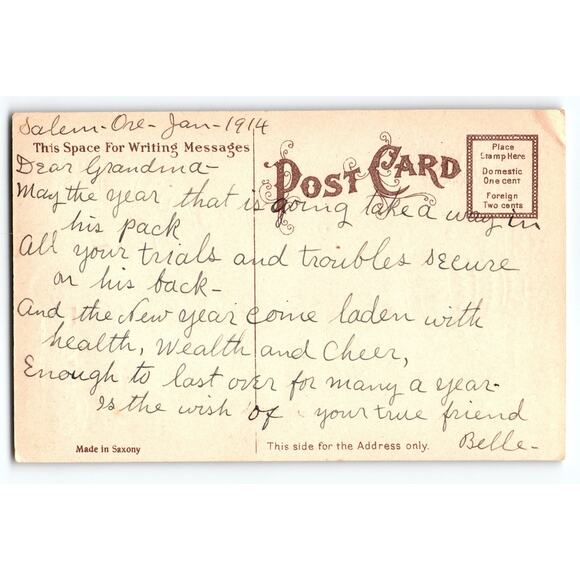 Salem-Ore-Jan-1914
This Space For Writing Messages
POST CARD
Place
Stamp Here
Domestic
One cent
Foreign
Two cents
Dear Grandma-
May the year that is going take a way in
his pack
All your trials and troubles secure
on his back-
And the New year come laden with
health, Wealth and Cheer,
Enough to last over for many a year-
Is the wish of your true friend
Belle-
Made in Saxony
This side for the Address only.